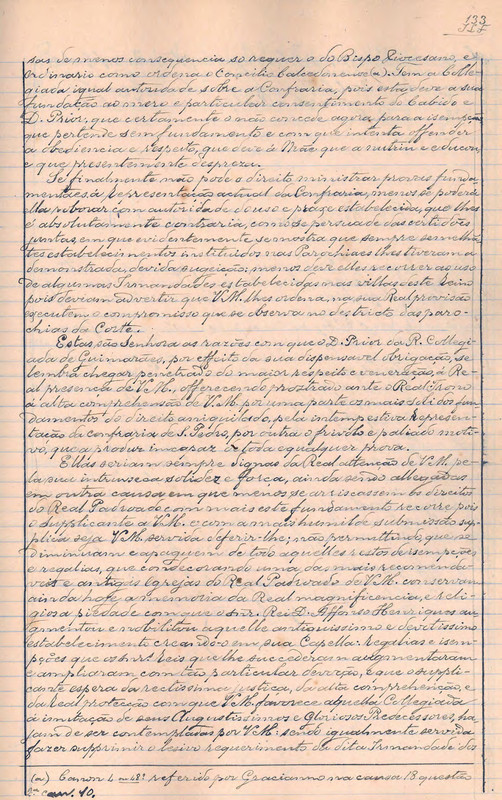 133
sas de menos consequencia so requer o do Bispo Diocesano, e
Ordinario como ordena o Concilio Calcedonense (a). Tem a Colle-
giada igual autoridade sobre a Confraria, pois esta deve a sua
fundação ao mero e particular consentimento do Cabido e
D. Prior, que certamente o não concede agora para a isempção
que pertende sem fundamento e com que intenta offender
a obediencia e respeito, que deve á Mãe que a nutriu e educou,
e que presentemente despreza.
Se finalmente não pode o direito ministrar provas funda-
mentaes, á representação actual da Confraria, menos se poderá
ella roborar com autoridade do uso e praxe estabelecida, que lhes
é absolutamente contraria, como se persuade das certidões
juntas, em que evidentemente se mostra que sempre semelhan-
tes estabelecimentos instituidos nas Parochiaes lhes tiveram a
demonstrada, devida sugeição; menos deve elles recorrer ao uso
de algumas Irmandades estabelecidas nas villas deste Reino
pois deviam advertir que V.M. lhes ordena, na sua Real provisão
executem o compromisso que se observa no destricto das paro-
chias da Corte.
Estas são Senhora as razões com que o D. Prior da R. Collegi-
ada de Guimarães, por effeito da sua dispensavel obrigação, se
lembra chegar penetrado do maior respeito e veneração, á Re-
al presença de V.M. offerecendo prostrado ante o Real Trono
á alta comprehensão de V.M. por uma parte os mais solidos fun-
damentos do direito aniquilado, pela intempestiva represen-
tação da Confraria de S. Pedro, por outra o frivolo e paliado moti-
vo, que a produz incapaz de toda e qualquer prova.
Ellas seriam sempre dignas da Real attenção de V.M. pe-
la sua intrinseca solidez e força, ainda sendo allegadas
em outra causa em que menos se arriscassem os direitos
do Real Padroado com mais este fundamento recorre pois
o supplicante a V.M. e com a mais humilde submissão sup-
plica seja V.M. servida deferir-lhe; não permittindo, que se
diminuam e apaguem de todo aquelles restos de isempções
e regalias, que condecorando uma das mais recomenda-
veis e antigas Igrejas do Real Padroado de V.M. conservam
ainda hoje a memoria da Real magnificencia, e reli-
giosa piedade com que o Snr. Rei D. Affonso Henriques au-
gmentou e nobilitou aquelle antiquissimo e devotissimo
estabelecimento creando-o em sua Capella: Regalias e isem-
pções que os Snrs. Reis que lhe succederam augmentaram
e ampliaram com tão particular devoção, e que o suppli-
cante espera da rectissima justiça, da alta comprehenção, e
da Real protecção com que V.M. favorece aquella Collegiada
á imitação de seus Augustissimos e Gloriosos Predecessores, ha-
jam de ser contempladas por V.M. sendo igualmente servida
fazer supprimir o lesivo requerimento da dita Irmandade dos
(a) Canon 4 referido por Gracianno na causa 18 questão
2ª can. 10.